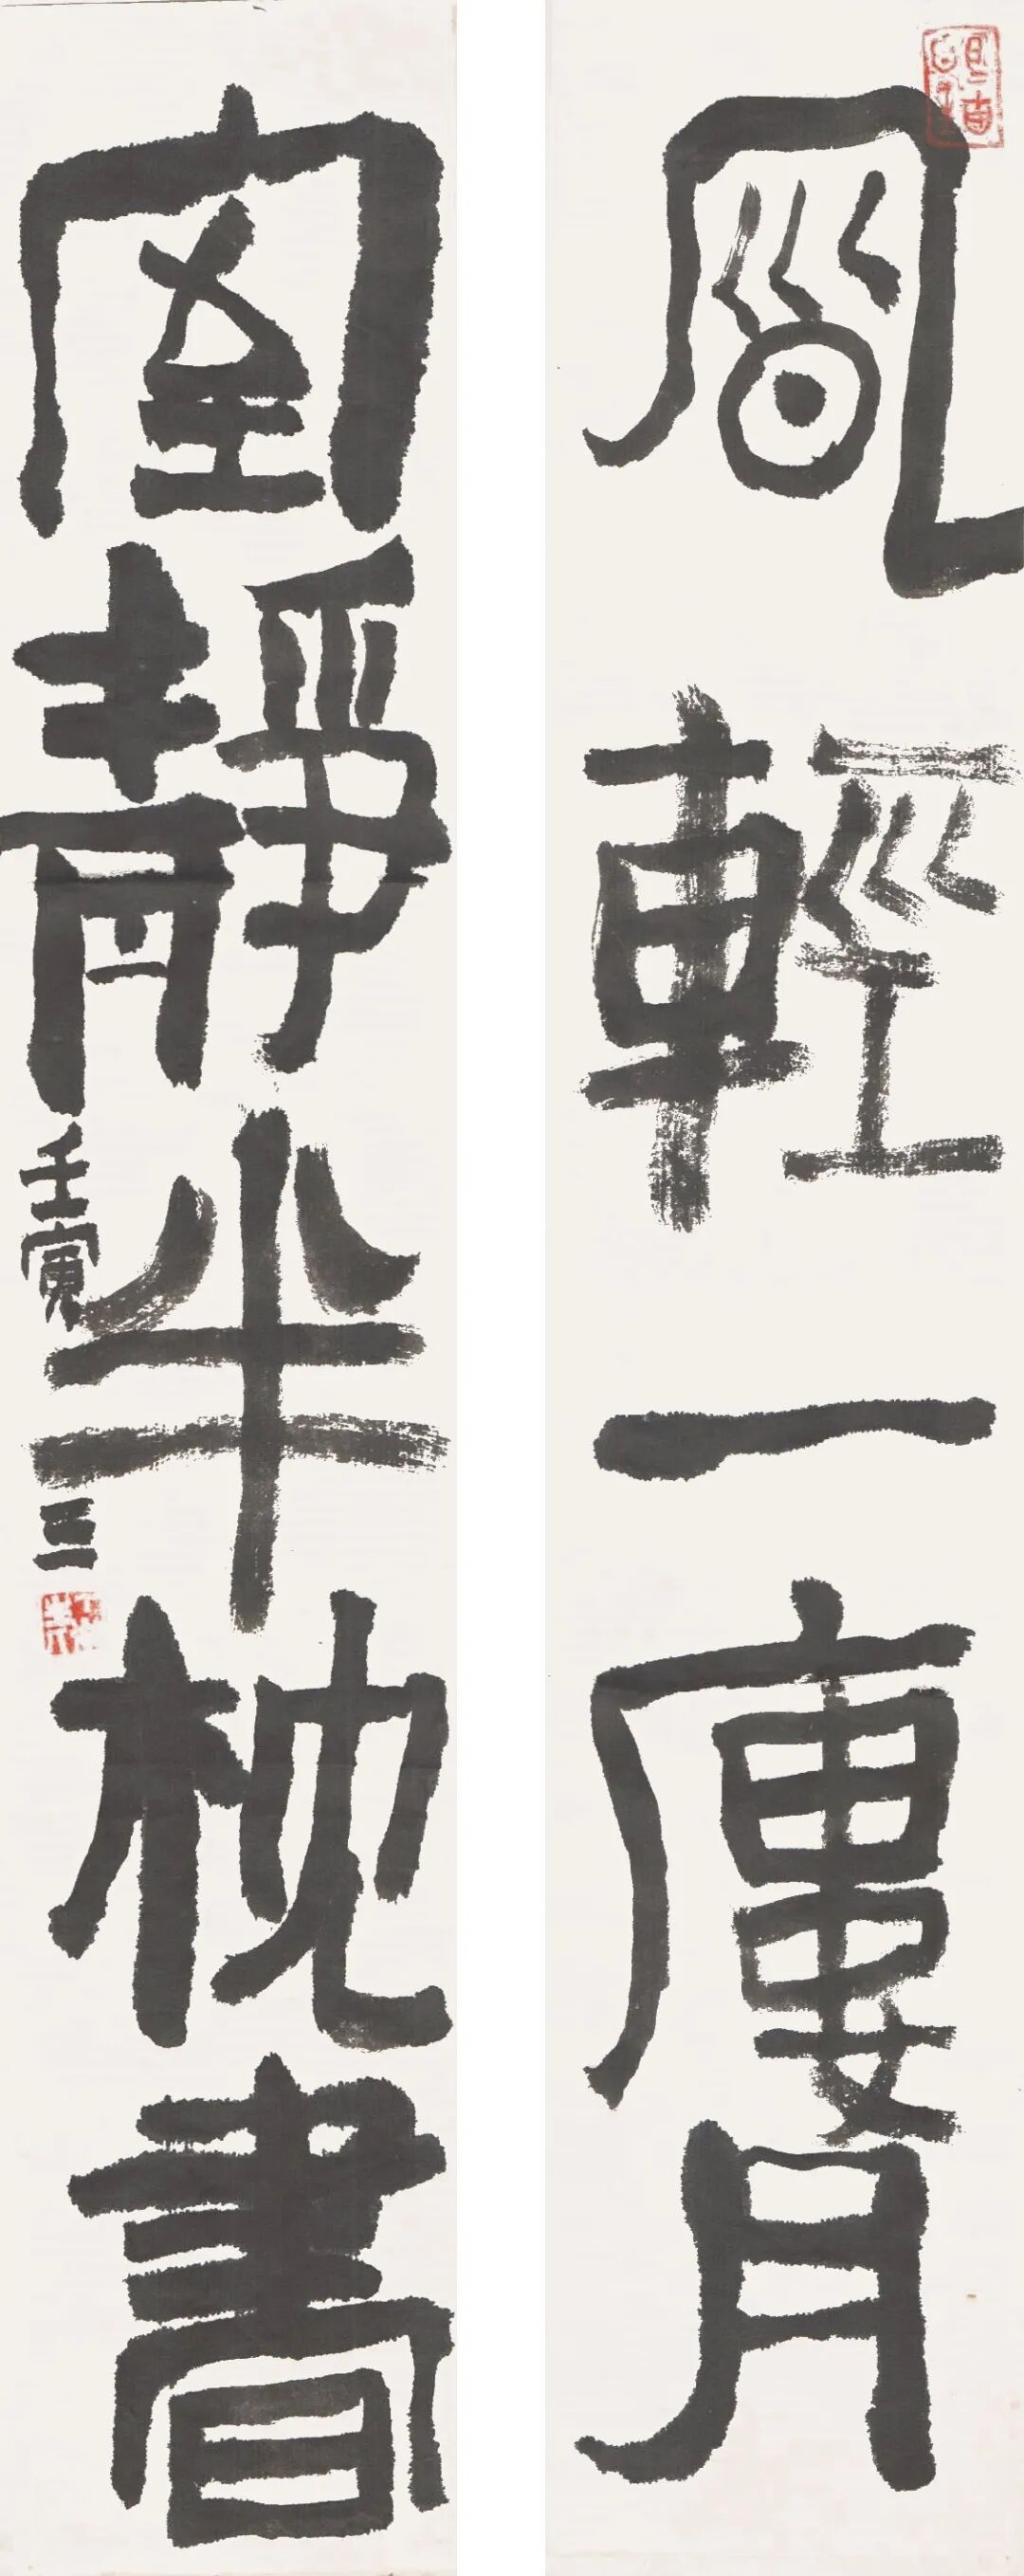 風輕一廔月
室靜半枕書
壬寅 三